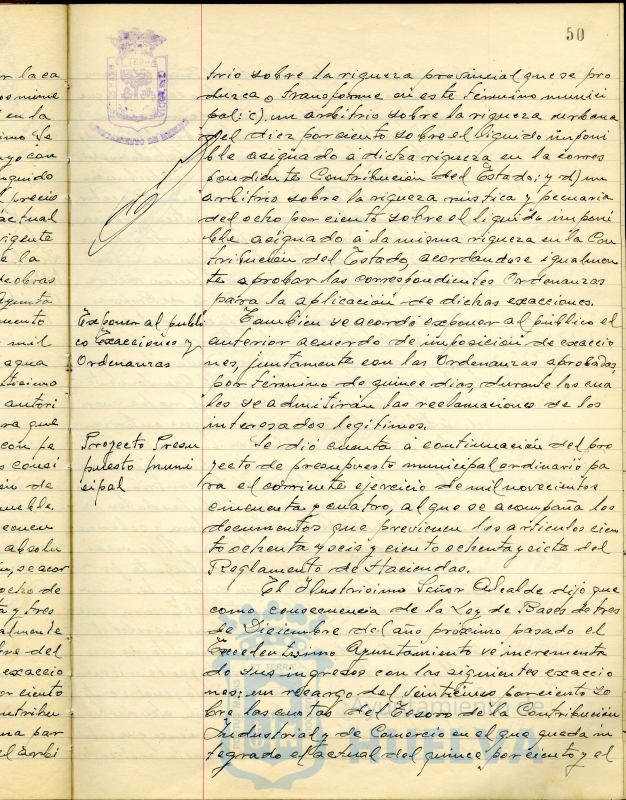 50
trio sobre la riqueza provincial que se pro
duzca o transforme en este término munici
pal; c) un arbitrio sobre la riqueza urbana
del diez por ciento sobre el líquido imponi
ble asignado á dicha riqueza en la corres
pondiente Contribución del Estado; y d) un
arbitrio sobre la riqueza rústica y pecuaria
del ocho por ciento sobre el líquido imponi
ble asignado á la misma riqueza en la Con
tribución del Estado, acordandose igualmen
te aprobar las correspondientes Ordenanzas
para la aplicación de dichas exacciones.
Exponer al públi
co Exacciones y
Ordenanzas
Tambien se acordó exponer al público el
anterior acuerdo de imposición de exaccio
nes, juntamente con las Ordenanzas aprobadas,
por término de quince dias, durante los cua
les se admitirán las reclamaciones de los
interesados legítimos.
Proyecto Presu
puesto muni
cipal
Se dió cuenta á continuación del pro
yecto de presupuesto municipal ordinario pa
ra el corriente ejercicio de mil novecientos
cincuenta y cuatro, al que se acompaña los
documentos que previenen los artículos cien
to ochenta y seis y ciento ochenta y siete del
Reglamento de Haciendas.
El Ilustrisimo Señor Alcalde dijo que
como consecuencia de la Ley de Bases de tres
de Diciembre del año próximo pasado el
Excelentisimo Ayuntamiento vé incrementa
do sus ingresos con las siguientes exaccio
nes: un recargo del veinticinco por ciento so
bre las cuotas del Tesoro de la Contribución
Industrial y de Comercio en el que queda in
tegrado el actual del quince por ciento y el
Ayuntamiento de
HUELVA